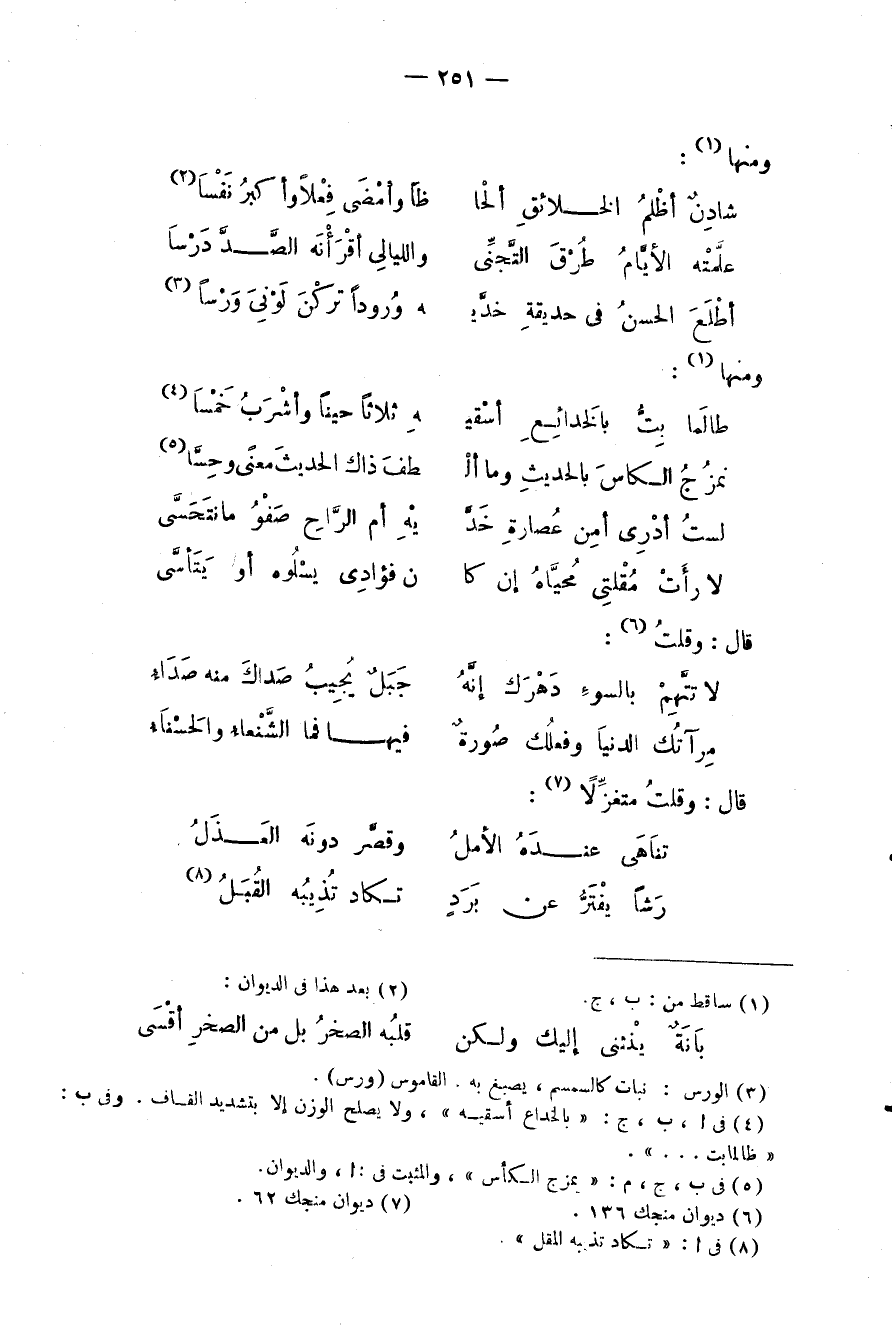 — ٢٥١ —
ومنها (١) :
شادِنٌ أظْلمُ الخــلائقِ ألْحا ظاً وأمْضَى فِعْلاً وأكبرُ نَفْسَا (٢)
علَّمتْه الأيَّامُ طُرْقَ التَّجنِّى والليالِى أقْرَأْنَه الصَّــدَّ دَرْسَا
أطْلَعَ الحسنُ فى حديقةِ خدَّيـ ـه وُروداً تركْنَ لَوْنِىَ وَرْساً (٣)
ومنها (١) :
طالَما بِتُّ بالخدائِـعِ أسْقيـ ـهِ ثلاثاً حيناً وأشْرَبُ خَمْسَا (٤)
نمزُجُ الـكاسَ بالحديثِ وما ألْـ ـطفَ ذاك الحديثَ معنًى وحِسَّا (٥)
لستُ أدْرِى أمِن عُصارةِ خَدَّ يْهِ أم الرَّاحِ صَفْوُ ما نتَحَسَّى
لا رأَتْ مُقْلتِى مُحيَّاهُ إن كا ن فؤادِى يسْلُوه أو يَتَأسَّى
قال : وقلتُ (٦) :
لا تتَّهِمْ بالسوءِ دَهْرَك إنَّهُ جَبَلٌ يُجِيبُ صَداكَ منه صَدَاءِ
مِرآتُك الدنيا وفعلُك صُورةٌ فيهــا فما الشَّنْعاء والحَسْناءِ
قال : وقلتُ متغزِّلًا (٧) :
تنَاهَى عنــدَهُ الأملُ وقصَّر دونَه العَــذَلُ
رَشاً يفْتَرُّ عن بَرَدٍ تـكاد تُذِيبُه القُبَـلُ (٨)
(١) ساقط من : ب ، ج. (٢) بعد هذا فى الديوان :
بَانَةٌ يْنثنِى إليك ولـكن قلبُه الصخرُ بل من الصخرِ أقْسَى
(٣) الورس : نبات كالسمسم ، يصبغ به . القاموس (ورس) .
(٤) فى ا ، ب ، ج : « بالخداع أسقيــه » ، ولا يصلح الوزن إلا بتشديد القـاف . وفى ب :
« ظالمابت . . . » .
(٥) فى ب ، ج ، م : « يمزج الـكأس » ، والمثبت فى : ا ، والديوان.
(٦) ديوان منجك ١٣٦ . (٧) ديوان منجك ٦٢ .
(٨) فى ا : « تـكاد تذيبه المقل » .